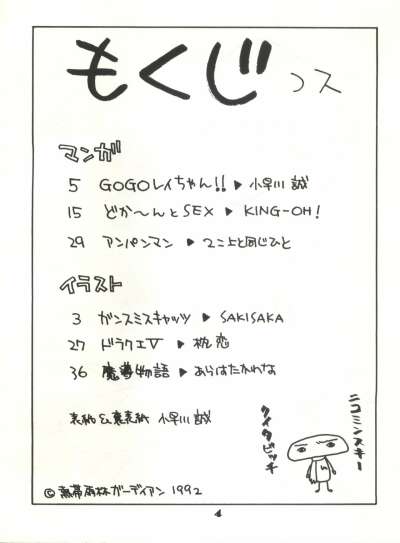 もくじ コス
マンガ
5 GOGOレイちゃん!! ▶ 小早川 誠
15 どか〜んとSEX ▶ KING-OH!
29 アンパンマン ▶ 2こ上と同じひと
イラスト
3 ガンスミスキャッツ ▶ SAKISAKA
27 ドラクエV ▶ 枕 恋
36 魔導物語 ▶ あらはたかれな
表紙&裏表紙 小早川 誠
ニコミンスキー
クイタビッチ
© 熱帯雨林ガーディアン 1992
4